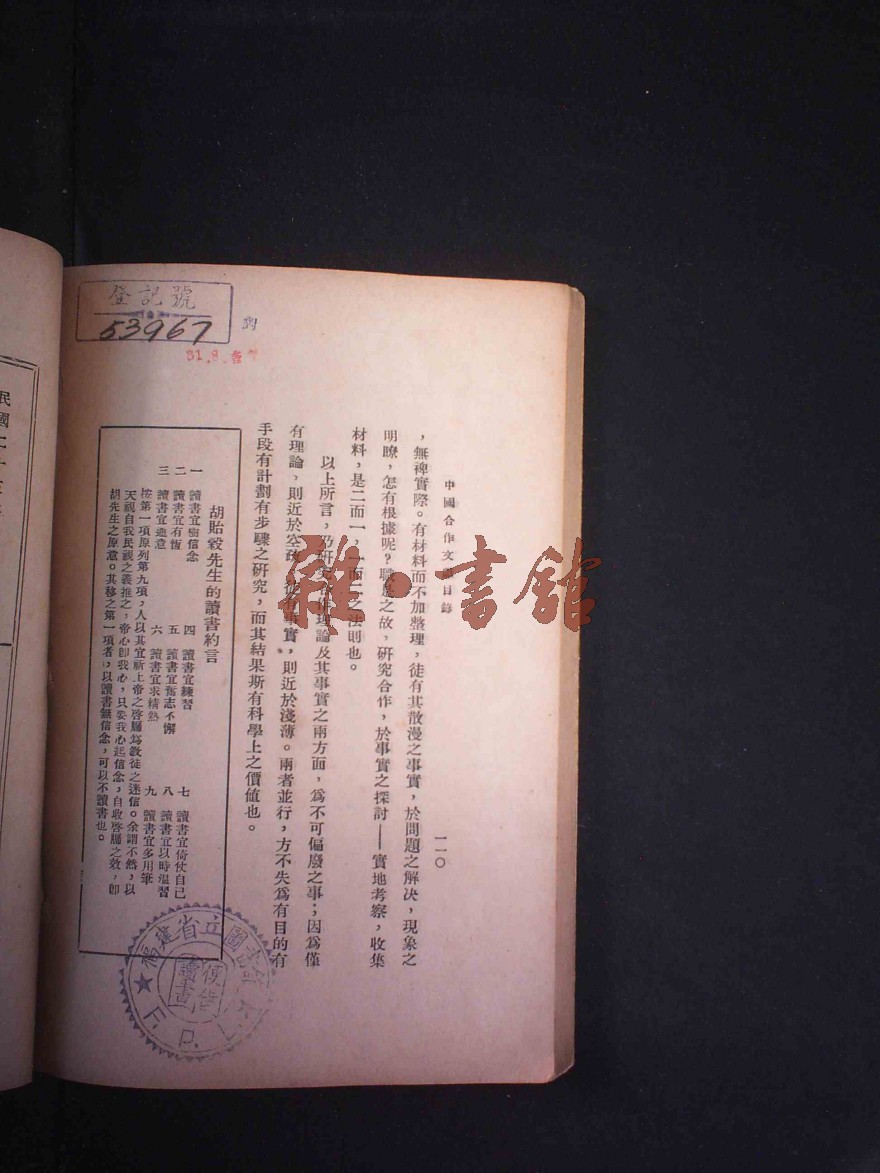 登記號
53967
31.8.
中國合作文目錄
一一〇
，無裨實際。有材料而不加整理，徒有其散漫之事實，於問題之解决，現象之
明瞭，怎有根據呢？職是之故，研究合作，於事實之探討——實地考察，收集
材料，是二而一，一而二之法則也。
以上所言，乃研究合作理論及其事實之兩方面，爲不可偏廢之事；因爲僅
有理論，則近於空，有事實，則近於淺薄。兩者並行，方不失爲有目的有
手段有計劃有步驟之研究，而其結果斯有科學上之價值也。
胡貽穀先生的讀書約言
一 讀書宜樹信念
二 讀書宜有恆
三 讀書宜適意
四 讀書宜練習
五 讀書宜奮志不懈
六 讀書宜求精熟
七 讀書宜倚仗自己
八 讀書宜以時溫習
九 讀書宜多用筆
按第一項原列第九項，人以其宜祈上帝之啓牖爲敎徒之迷信。余謂不然，以
天視自我民視之義推之，帝心卽我心，只要我心起信念，自收啓牖之效，卽
胡先生之原意。其移之第一項者，以讀書無信念，可以不讀書也。
福建省立圖書館
F. P. L.
民國二十
雅·書館